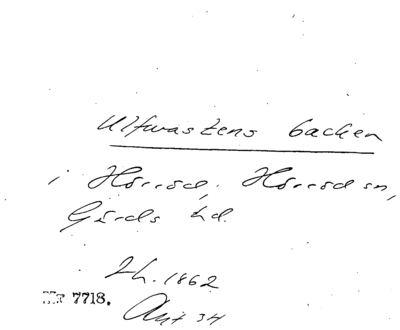 Ulfwastens backen
i Hörröd, Hörröd sn,
Gärds hd.
Lh. 1862
Nr 7718.
Akt 34